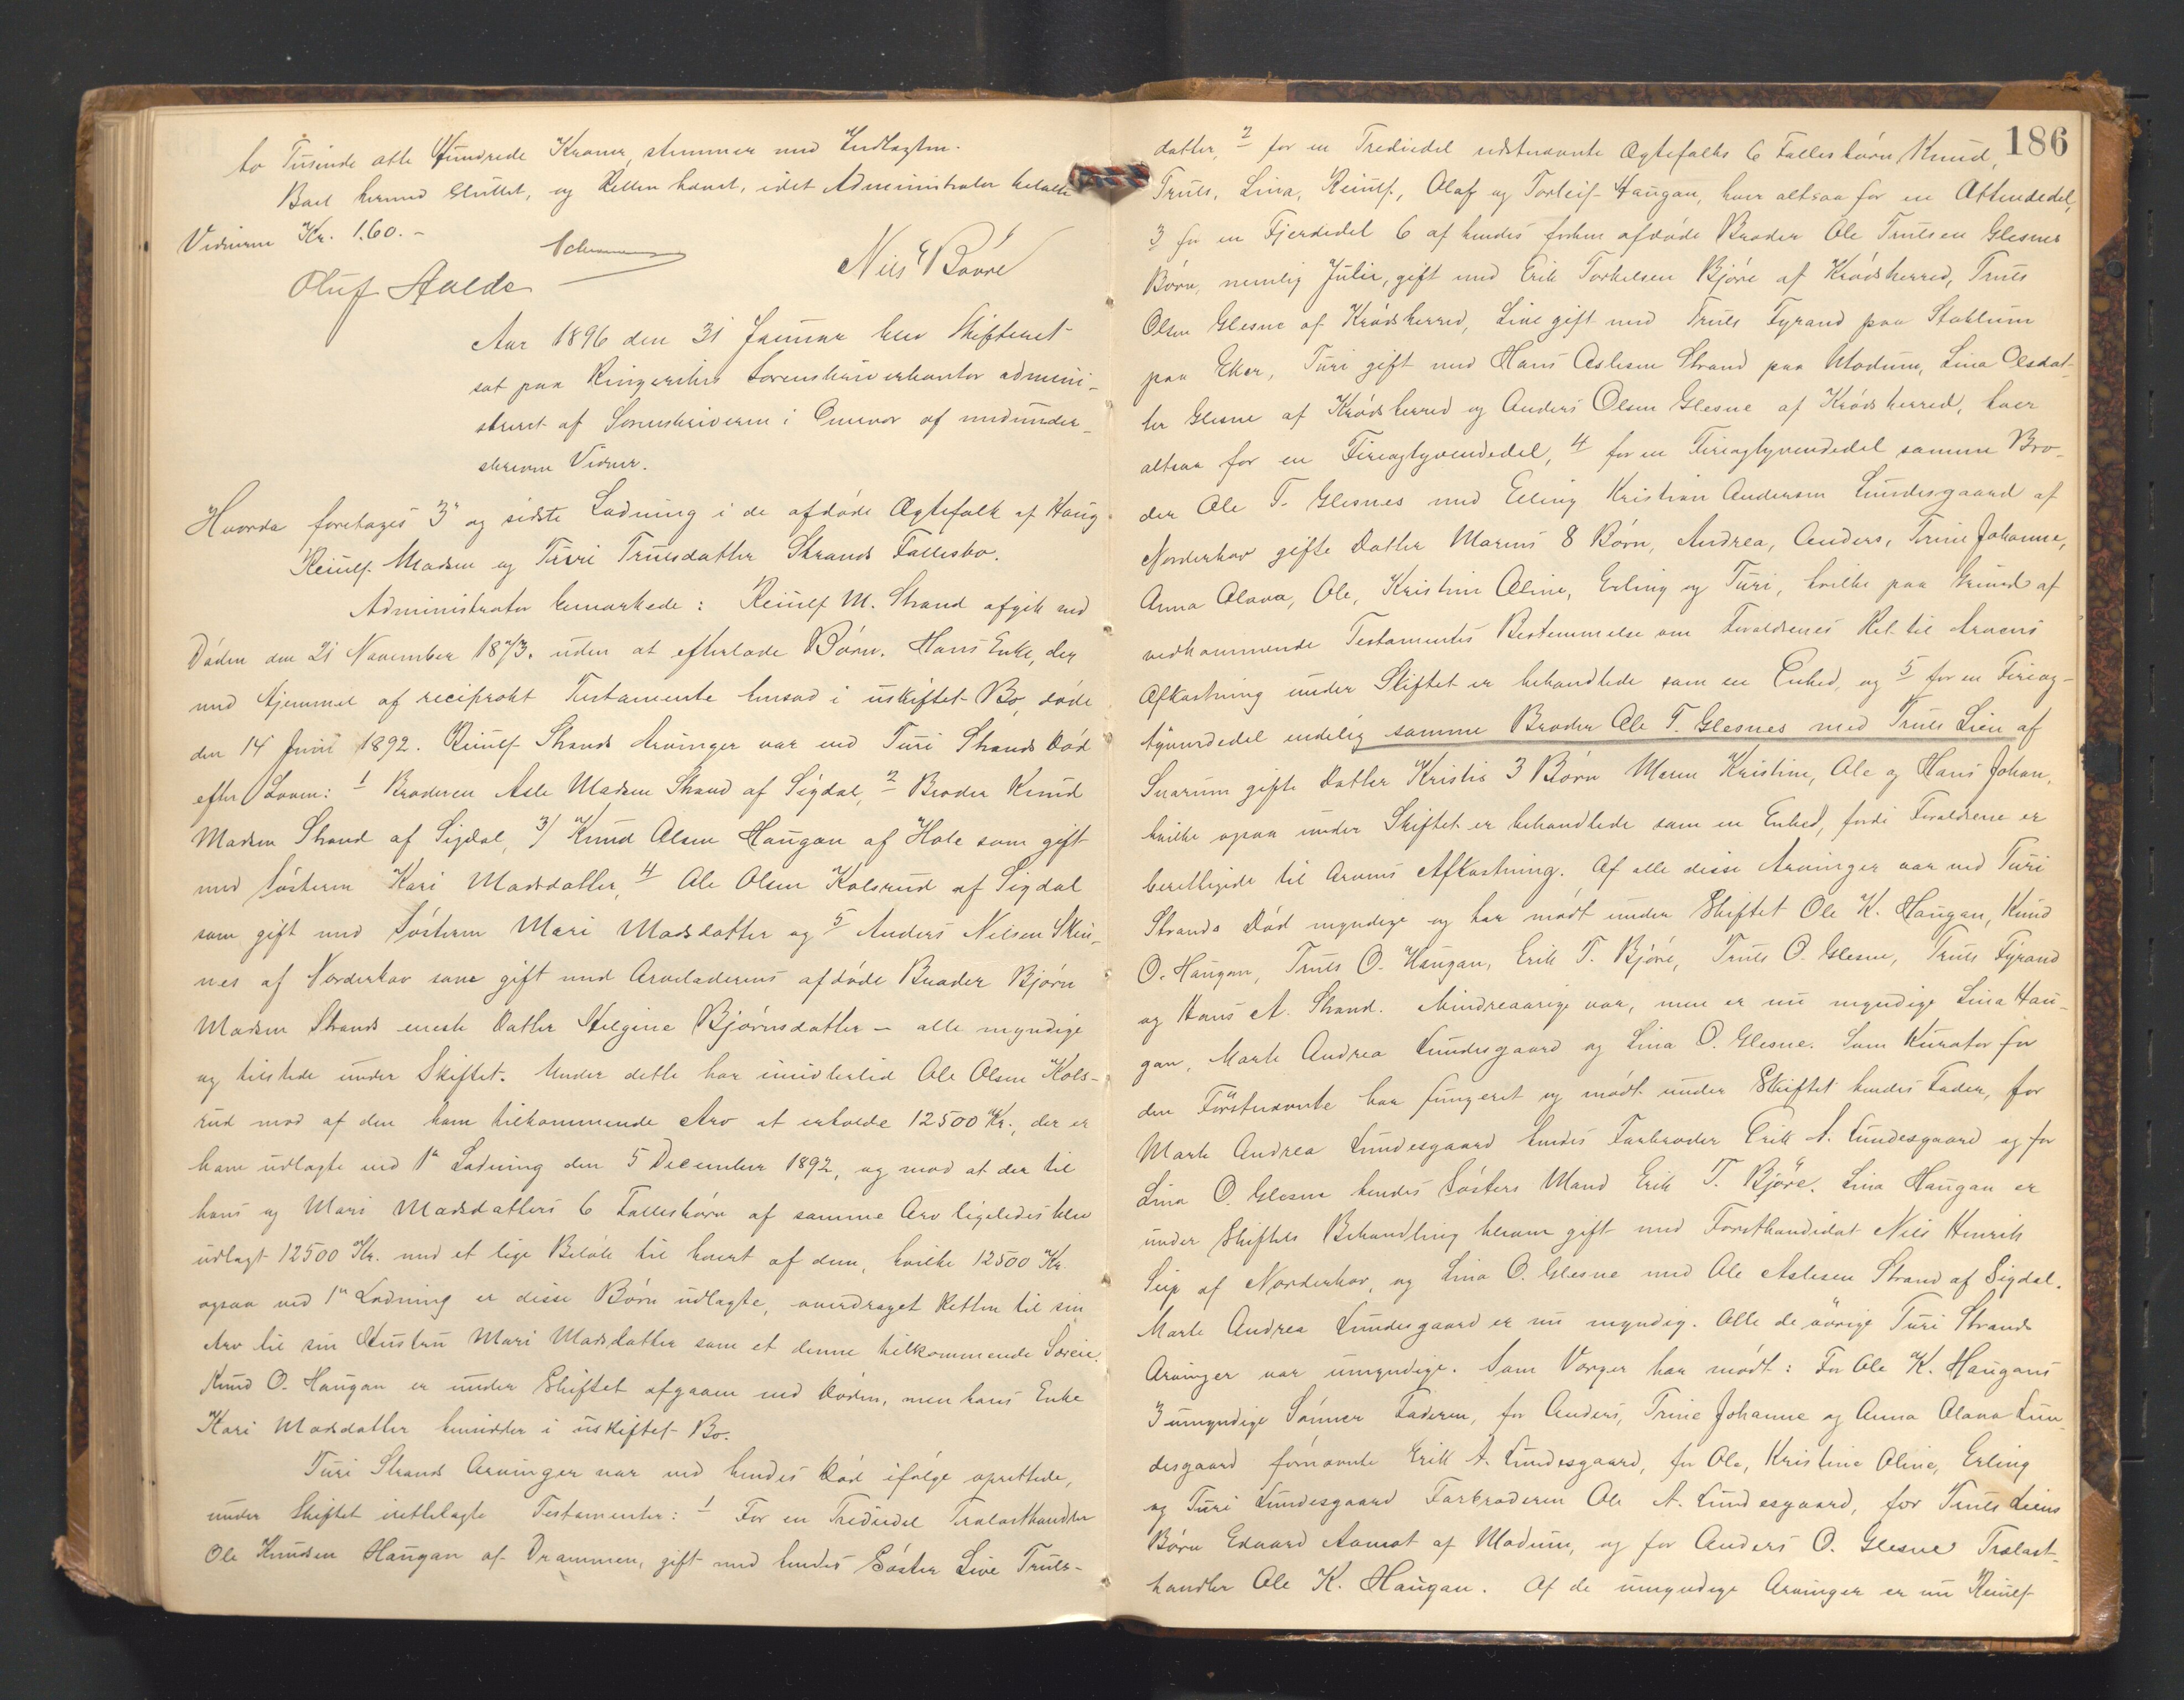 to Tusinde otte Hundrede Kroner stemmer med Indtægten.
Boet hermed sluttet, og Retten hævet, idet Administrator betalte
Vidnerne Kr. 1.60. -
Oluf Aalde
Nils Bovre
Aar 1896 den 31 Januar blev Skifteret
sat paa Ringerikes Sorenskriverkontor admini-
streret af Sorenskriveren i Overvær af medunder-
skrevne Vidner.
Hvorda foretoges 3die og sidste Lodning i de afdøde Ægtefolk af Haug
Reiulf Madsen og Turi Trulsdatter Strands Fællesbo.
Administrator bemærkede: Reiulf M. Strand afgik ved
Døden den 21 November 1873. uden at efterlade Børn. Hans Enke, der
med Hjemmel af reciprokt Testamente hensad i uskiftet Bo, døde
den 14 Juni 1892. Reiulf Strands Arvinger var ved Turi Strands Død
efter Loven: 1 Broderen Asle Madsen Strand af Sigdal, 2 Broder Knud
Madsen Strand af Sigdal, 3/ Knud Olsen Haugan af Hole som gift
med Søsteren Kari Madsdatter, 4 Ole Olsen Kolsrud af Sigdal
som gift med Søsteren Mari Madsdatter og 5 Anders Nilsen Skin-
nes af Norderhov som gift med Arveladerens afdøde Broder Bjørn
Madsen Strands eneste Datter Helgine Bjørnsdatter - alle myndige
og tilstede under Skiftet. Under dette har imidlertid Ole Olsen Kols-
rud mod af den ham tilkommende Arv at erholde 12500 Kr., der er
ham udlagte ved 1ste Lodning den 5 December 1892, og mod at der til
hans og Mari Madsdatters 6 Fællesbørn af samme Arv ligeledes blev
udlagt 12500 Kr. med et lige Beløb til hvert af dem, hvilke 12500 Kr.
ogsaa ved 1ste Lodning er disse Børn udlagte, overdraget Retten til sin
Arv til sin Hustru Mari Madsdatter som et denne tilkommende Særeie.
Knud O. Haugan er under Skiftet afgaaen ved Døden, men hans Enke
Kari Madsdatter hensidder i uskiftet Bo.
Turi Strands Arvinger var ved hendes Død ifølge oprettede,
under Skiftet irettelagte Testamenter: 1 For en Trediedel Trælasthandler
Ole Knudsen Haugan af Drammen, gift med hendes Søster Live Truls-
186
datter, 2 for en Trediedel sidstnævnte Ægtefolks 6 Fællesbørn Knud,
Truls, Lina, Reiulf, Olaf og Torleif Haugan, hver altsaa for en Attendedel,
3 for en Fjerdedel 6 af hendes forhen afdøde Broder Ole Trulsen Glesnes
Børn, nemlig Julie, gift med Erik Torkelsen Bjøre af Krødsherred, Truls
Olsen Glesne af Krødsherred, Live gift med Truls Fyrand paa Stablum
paa Eker, Turi gift med Hans Aslesen Strand paa Modum, Lina Olsdat-
ter Glesne af Krødsherred og Anders Olsen Glesne af Krødsherred, hver
altsaa for en Fireogtyvendedel, 4 for en Fireogtyvendedel samme Bro-
der Ole T. Glesnes med Elling Kristian Andersen Lundesgaard af
Norderhov gifte Datter Marens 8 Børn, Andrea, Anders, Trine Johanne,
Anna Olava, Ole, Kristine Oline, Erling og Turi, hvilke paa Grund af
vedkommende Testamentes Bestemmelse om Forældrenes Ret til Arvens
Afkastning under Skiftet er behandlede som en Enhed, og 5 for en Fireog-
tyvendedel endelig samme Broder Ole T. Glesnes med Truls Lien af
Snarum gifte Datter Kristis 3 Børn Maren Kristine, Ole og Hans Johan,
hvilke ogsaa under Skiftet er behandlede som en Enhed, fordi Forældrene er
berettigede til Arvens Afkastning. Af alle disse Arvinger var ved Turi
Strands Død myndige og har mødt under Skiftet Ole K. Haugan, Knud
O. Haugan, Truls O. Haugan, Erik T. Bjøre, Truls O. Glesne, Truls Fyrand
og Hans A. Strand. Mindreaarige var, men er nu myndige Lina Hau-
gan, Marte Andrea Lundesgaard og Lina O. Glesne. Som Kurator for
den Førstnævnte har fungeret og mødt under Skiftet hendes Fader, for
Marte Andrea Lundesgaard hendes Farbroder Erik A. Lundesgaard og for
Lina O. Glesne hendes Søsters Mand Erik T. Bjøre. Lina Haugan er
under Skiftets Behandling bleven gift med Forstkandidat Nils Henrik
Seip af Norderhov, og Lina O. Glesne med Ole Aslesen Strand af Sigdal.
Marte Andrea Lundesgaard er nu myndig. Alle de øvrige Turi Strands
Arvinger var umyndige. Som Værger har mødt: For Ole K. Haugans
3 umyndige Sønner Faderen, for Anders, Trine Johanne og Anna Olava Lun-
desgaard fornævnte Erik A. Lundesgaard, for Ole, Kristine Oline, Erling
og Turi Lundesgaard Farbroderen Ole A. Lundesgaard, for Truls Liens
Børn Edvard Aamot af Modum, og for Anders O. Glesne Trælast-
handler Ole K. Haugan. Af de umyndige Arvinger er nu Reiulf